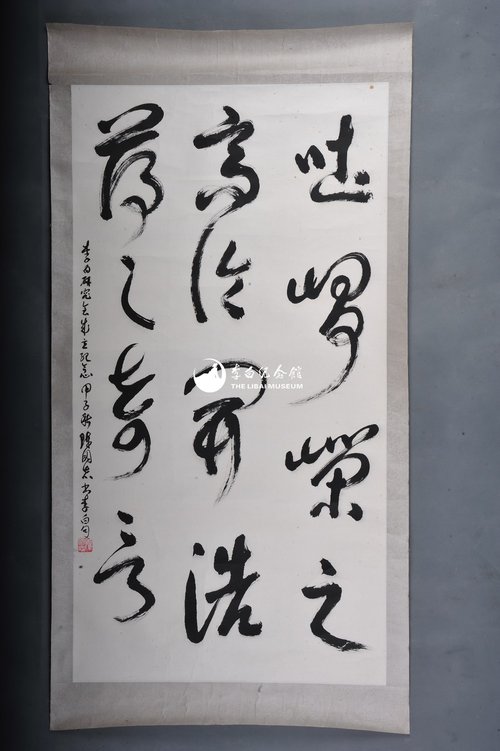 吐崢嶸之
高論開浩
蕩之奇言
李白研究会成立纪念 甲子秋 国志书李白句
李白纪念館
THE LIBAI MUSEUM